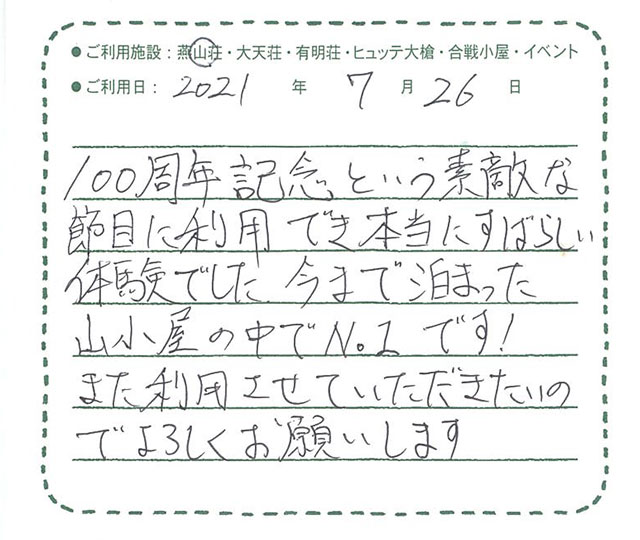 ●ご利用施設：燕山荘・大天荘・有明荘・ヒュッテ大槍・合戦小屋・イベント
●ご利用日： 2021 年 7 月 26 日
100周年記念という素敵な
節目に利用でき本当にすばらしい
体験でした 今まで泊まった
山小屋の中でNo.1です!
また利用させていただきたいの
でよろしくお願いします